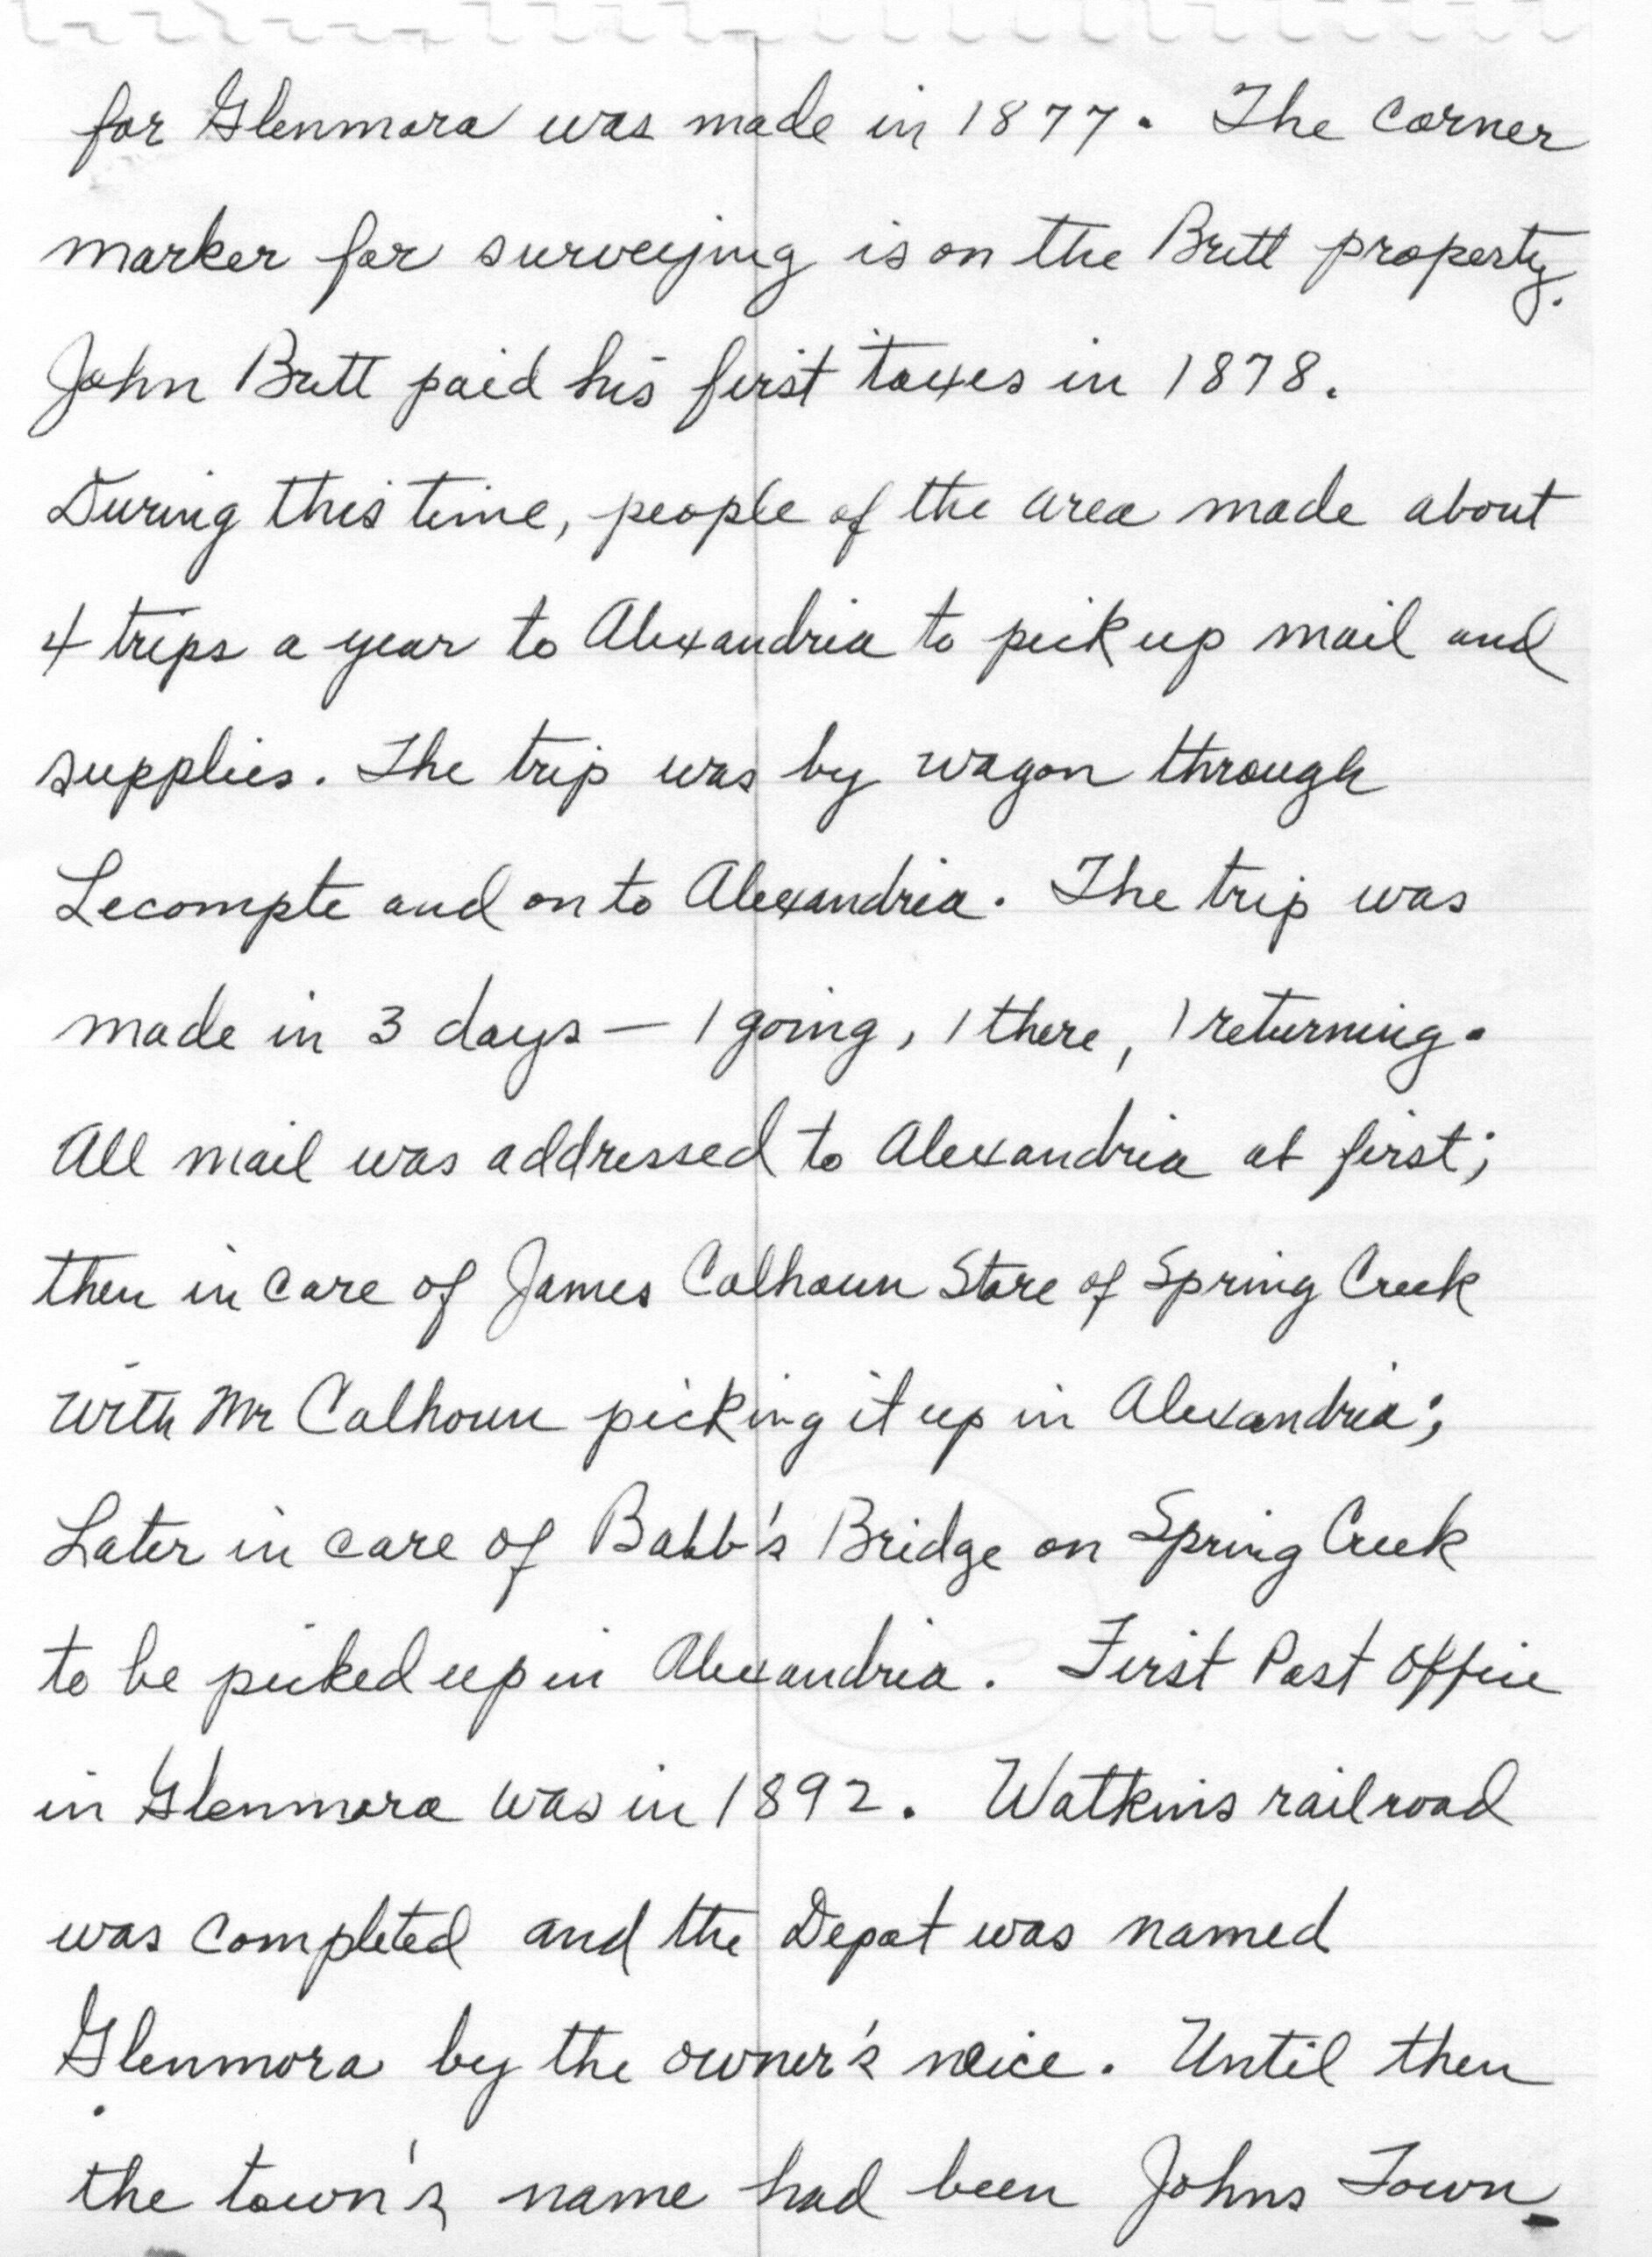 for Glenmora was made in 1877. The corner
marker for surveying is on the Britt property.
John Britt paid his first taxes in 1878.
During this time, people of the area made about
4 trips a year to Alexandria to pick up mail and
supplies. The trip was by wagon through
Lecompte and on to Alexandria. The trip was
made in 3 days — 1 going, 1 there, 1 returning.
All mail was addressed to Alexandria at first;
then in care of James Calhoun Store of Spring Creek
with Mr Calhoun picking it up in Alexandria;
Later in care of Babb's Bridge on Spring Creek
to be picked up in Alexandria. First Post Office
in Glenmora was in 1892. Watkins railroad
was completed and the Depot was named
Glenmora by the owner's neice. Until then
the town's name had been Johns Town.